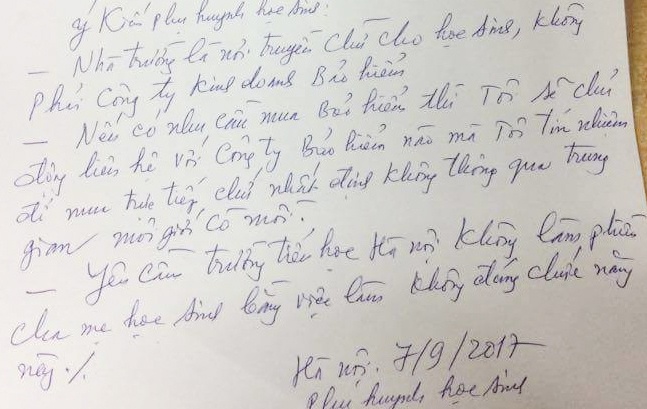 ý Kiến phụ huynh học sinh:
— Nhà trường là nơi truyền chữ cho học sinh, không
phải Công ty kinh doanh Bảo hiểm
— Nếu có nhu cầu mua Bảo hiểm thì Tôi sẽ chủ
động liên hệ với Công ty Bảo hiểm nào mà Tôi tín nhiệm
để mua trực tiếp, chứ nhất định không thông qua trung
gian, môi giới cò mồi.
— Yêu cầu trường tiểu học Hà nội không làm phiền
cha mẹ học sinh bằng việc làm không đúng chức năng
này ./.
Hà nội. 7/9/2017
Phụ huynh học sinh